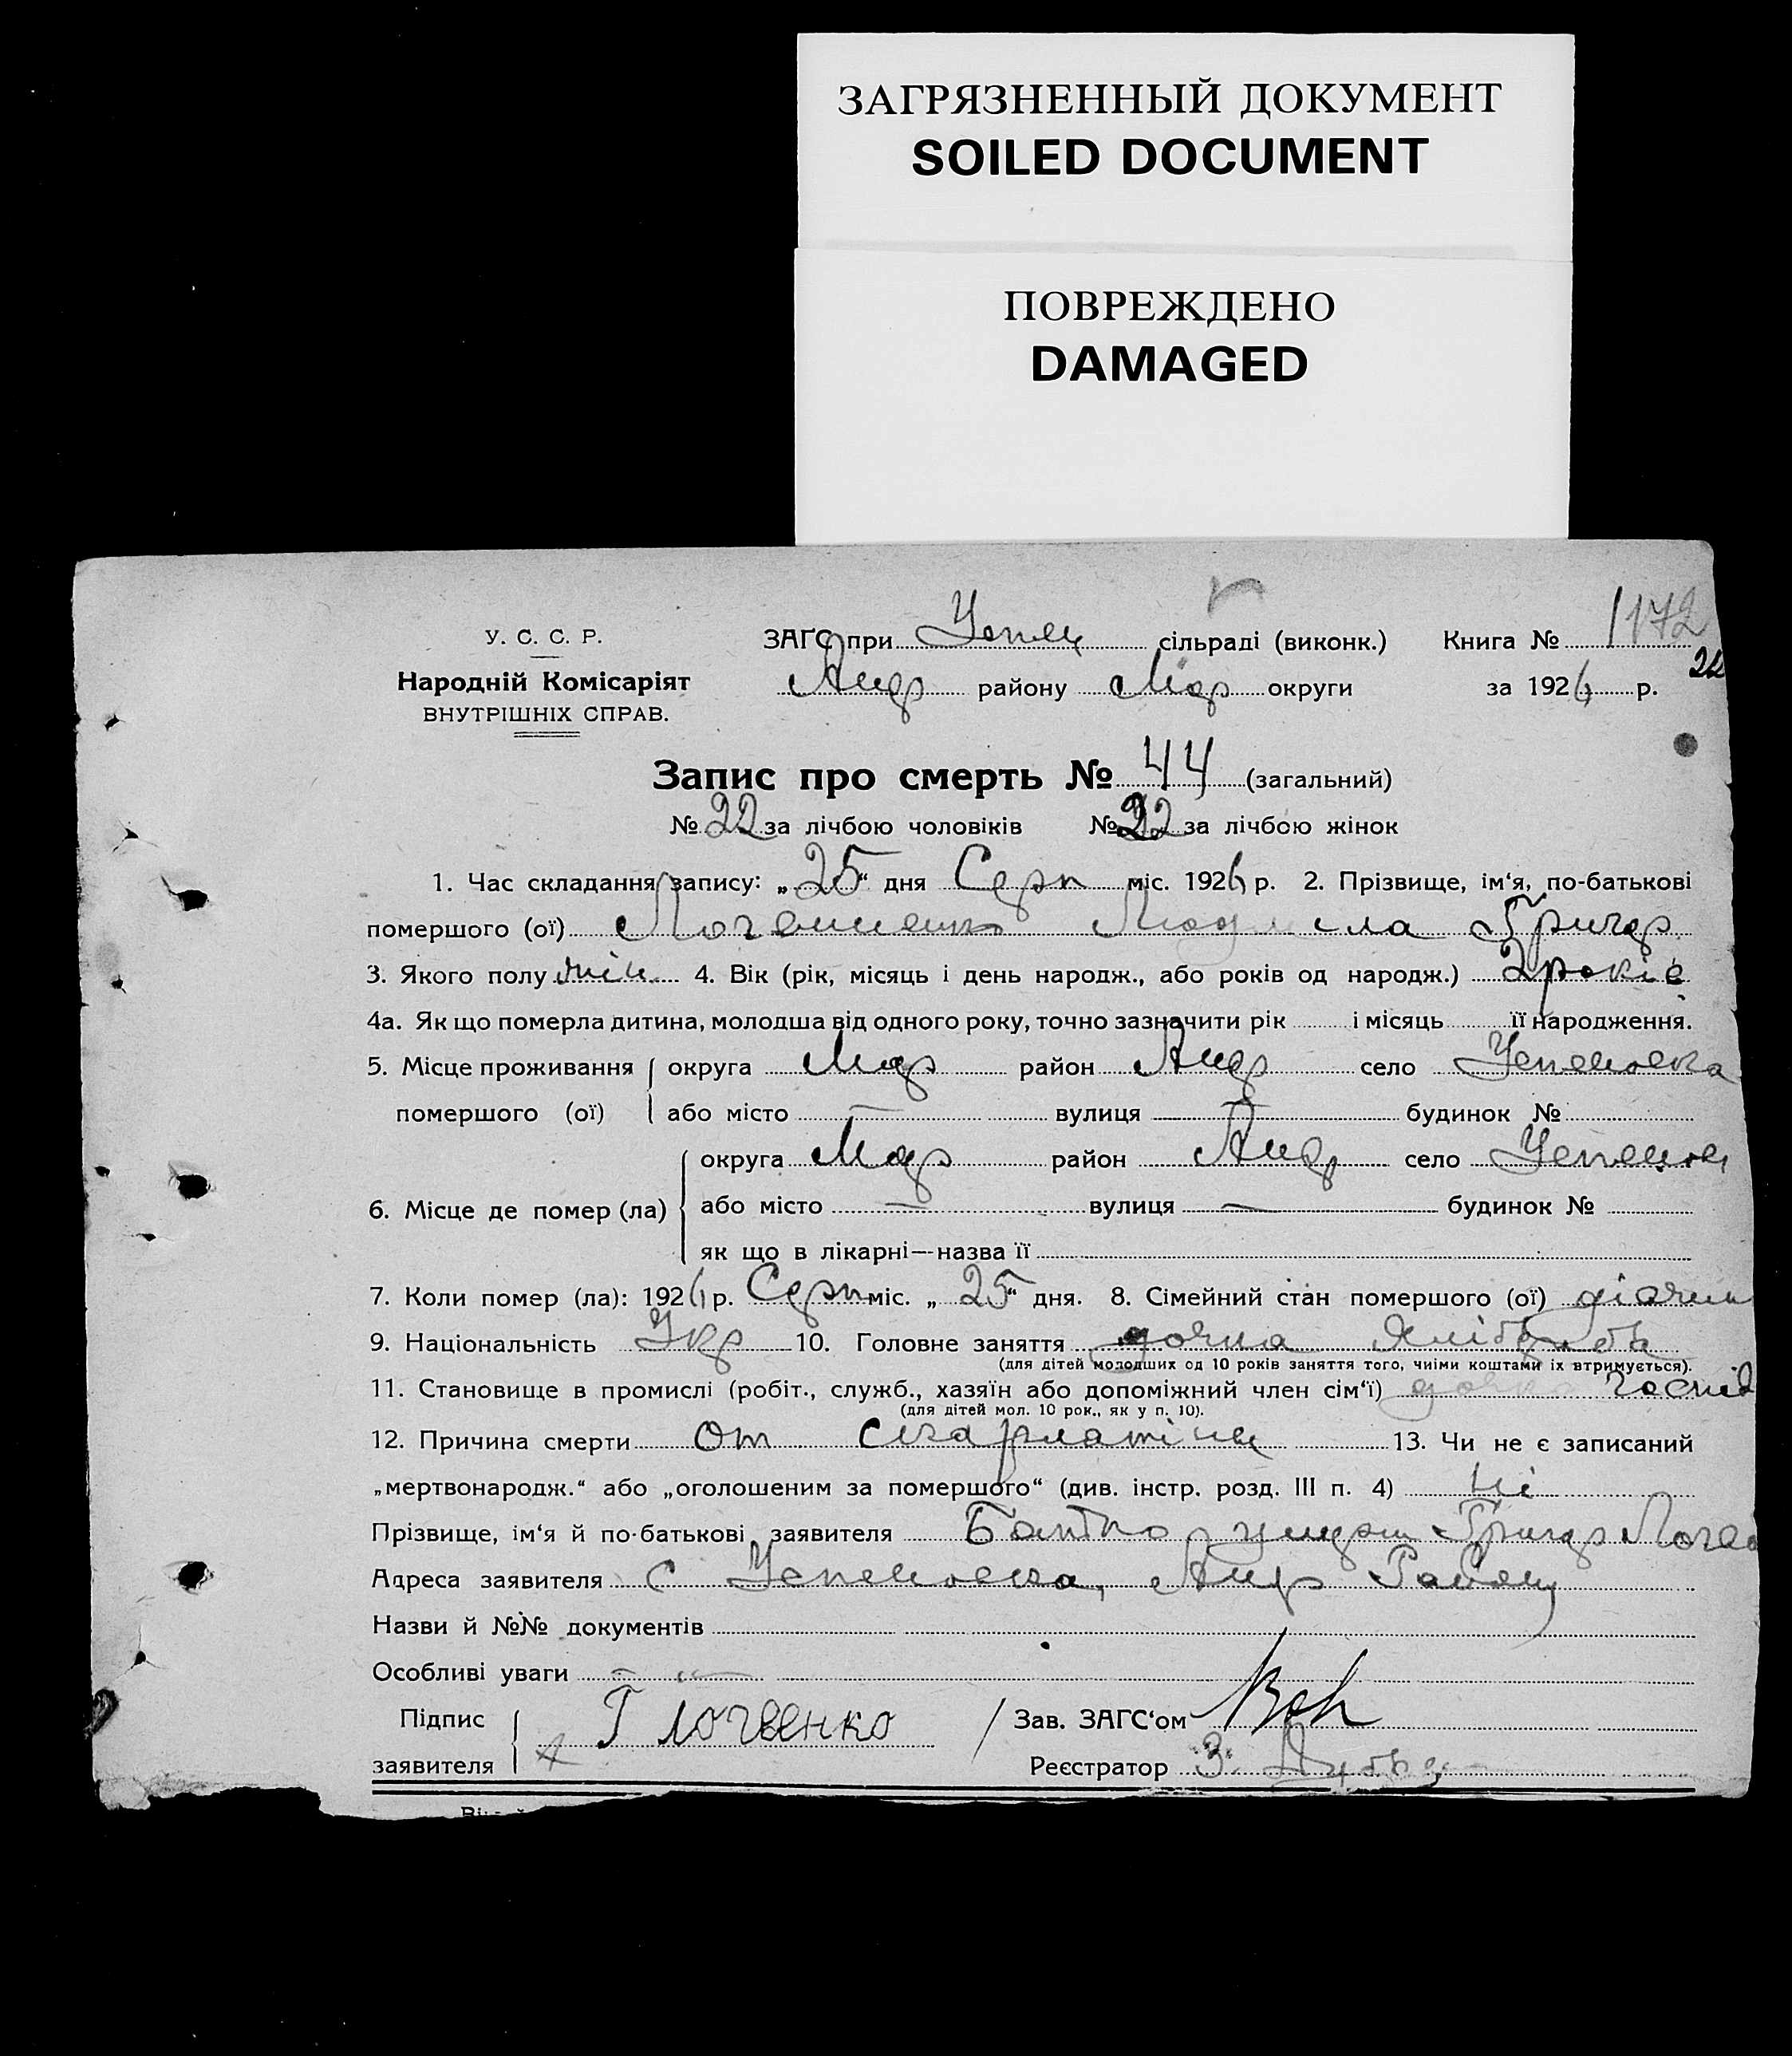 ЗАГРЯЗНЕННЫЙ ДОКУМЕНТ
SOILED DOCUMENT
ПОВРЕЖДЕНО
DAMAGED
У. С. С. Р.
Народній Комісаріят
ВНУТРІШНІХ СПРАВ.
ЗАГС при Успен сільраді (виконк.) Книга № 1172
Андр району Мар округи за 1926 р. 22
Запис про смерть № 44 (загальний)
№ 22 за лічбою чоловіків № 22 за лічбою жінок
1. Час складання запису: „25“ дня Серп міс. 1926 р. 2. Прізвище, ім‘я, по-батькові
помершого (ої) Людмила Григор
3. Якого полу жін 4. Вік (рік, місяць і день народж., або років од народж.) 2 років
4а. Як що померла дитина, молодша від одного року, точно зазначити рік і місяць її народження.
5. Місце проживання округа Мар район Андр село Успеновка
помершого (ої) або місто — вулиця — будинок №
6. Місце де помер (ла) округа Мар район Андр село Успенов
або місто — вулиця — будинок №
як що в лікарні—назва її
7. Коли помер (ла): 1926 р. Серп міс. „25“ дня. 8. Сімейний стан помершого (ої)
9. Національність Укр 10. Головне заняття дочка Хлібороба
(для дітей молодших од 10 років заняття того, чиїми коштами їх втримується).
11. Становище в промислі (робіт., служб., хазяїн або допоміжний член сім‘ї) дочка
(для дітей мол. 10 рок., як у п. 10).
12. Причина смерти От скарлатіни 13. Чи не є записаний
„мертвонародж.“ або „оголошеним за помершого“ (див. інстр. розд. III п. 4) Ні
Прізвище, ім‘я й по-батькові заявителя Батько Григор
Адреса заявителя с Успеновка, Андр Району
Назви й №№ документів
Особливі уваги —
Підпис
заявителя Г
Зав. ЗАГС‘ом
Реєстратор